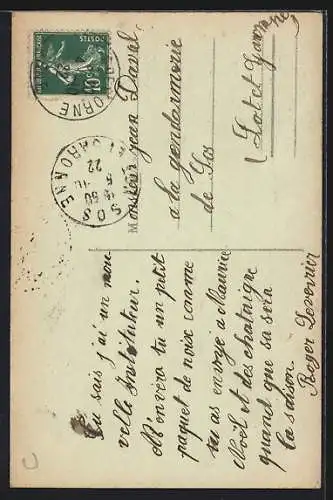 POSTES
10c
SOS
LOT-ET-GARONNE
22
Monsieur jean Daval
a la gendarmerie
de Sos
(Lot et Garonne)
Tu sais j'ai un nou
velle Instituteur.
M'envera tu un petit
paquet de noix comme
tu as envoyé a Maurice
Noël et des chataigne
quand que sa sera
la saison.
Roger Leverrier